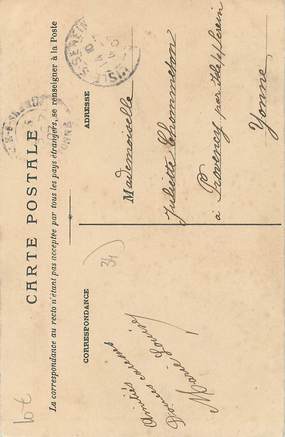 CARTE POSTALE
La correspondance au recto n'étant pas acceptée par tous les pays étrangers, se renseigner à la Poste
CORRESPONDANCE
ADRESSE
Amitiés
Marie
Mademoiselle
Juliette Chommeton
à Provency par Isle s/ Serein
Yonne
34